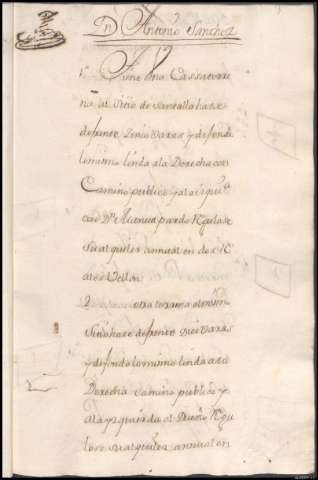 Dn Antonio Sanchez
1 Tiene una Cassa terre
na al Sitio de santalla haze
defrente Zinco Varas y defondo
lo mismo linda ala Derecha con
Camino publico y ala izquier
con Dn pardo Regulase
su alquiler annual en dos Rs
de Vellon
2 otra terrena al mismo
Sitio haze defrente Seis Varas
y defondo lo mismo linda a la
Derecha Camino publico y
ala yzquierda el Dueño Regu
lase su alquiler annual en